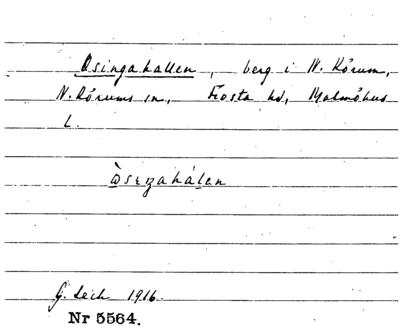 Osingakallen, berg i N. Rörum,
N. Rörums sn, Frosta hd, Malmöhus
L.
G. Sech 1916.
Nr 5564.